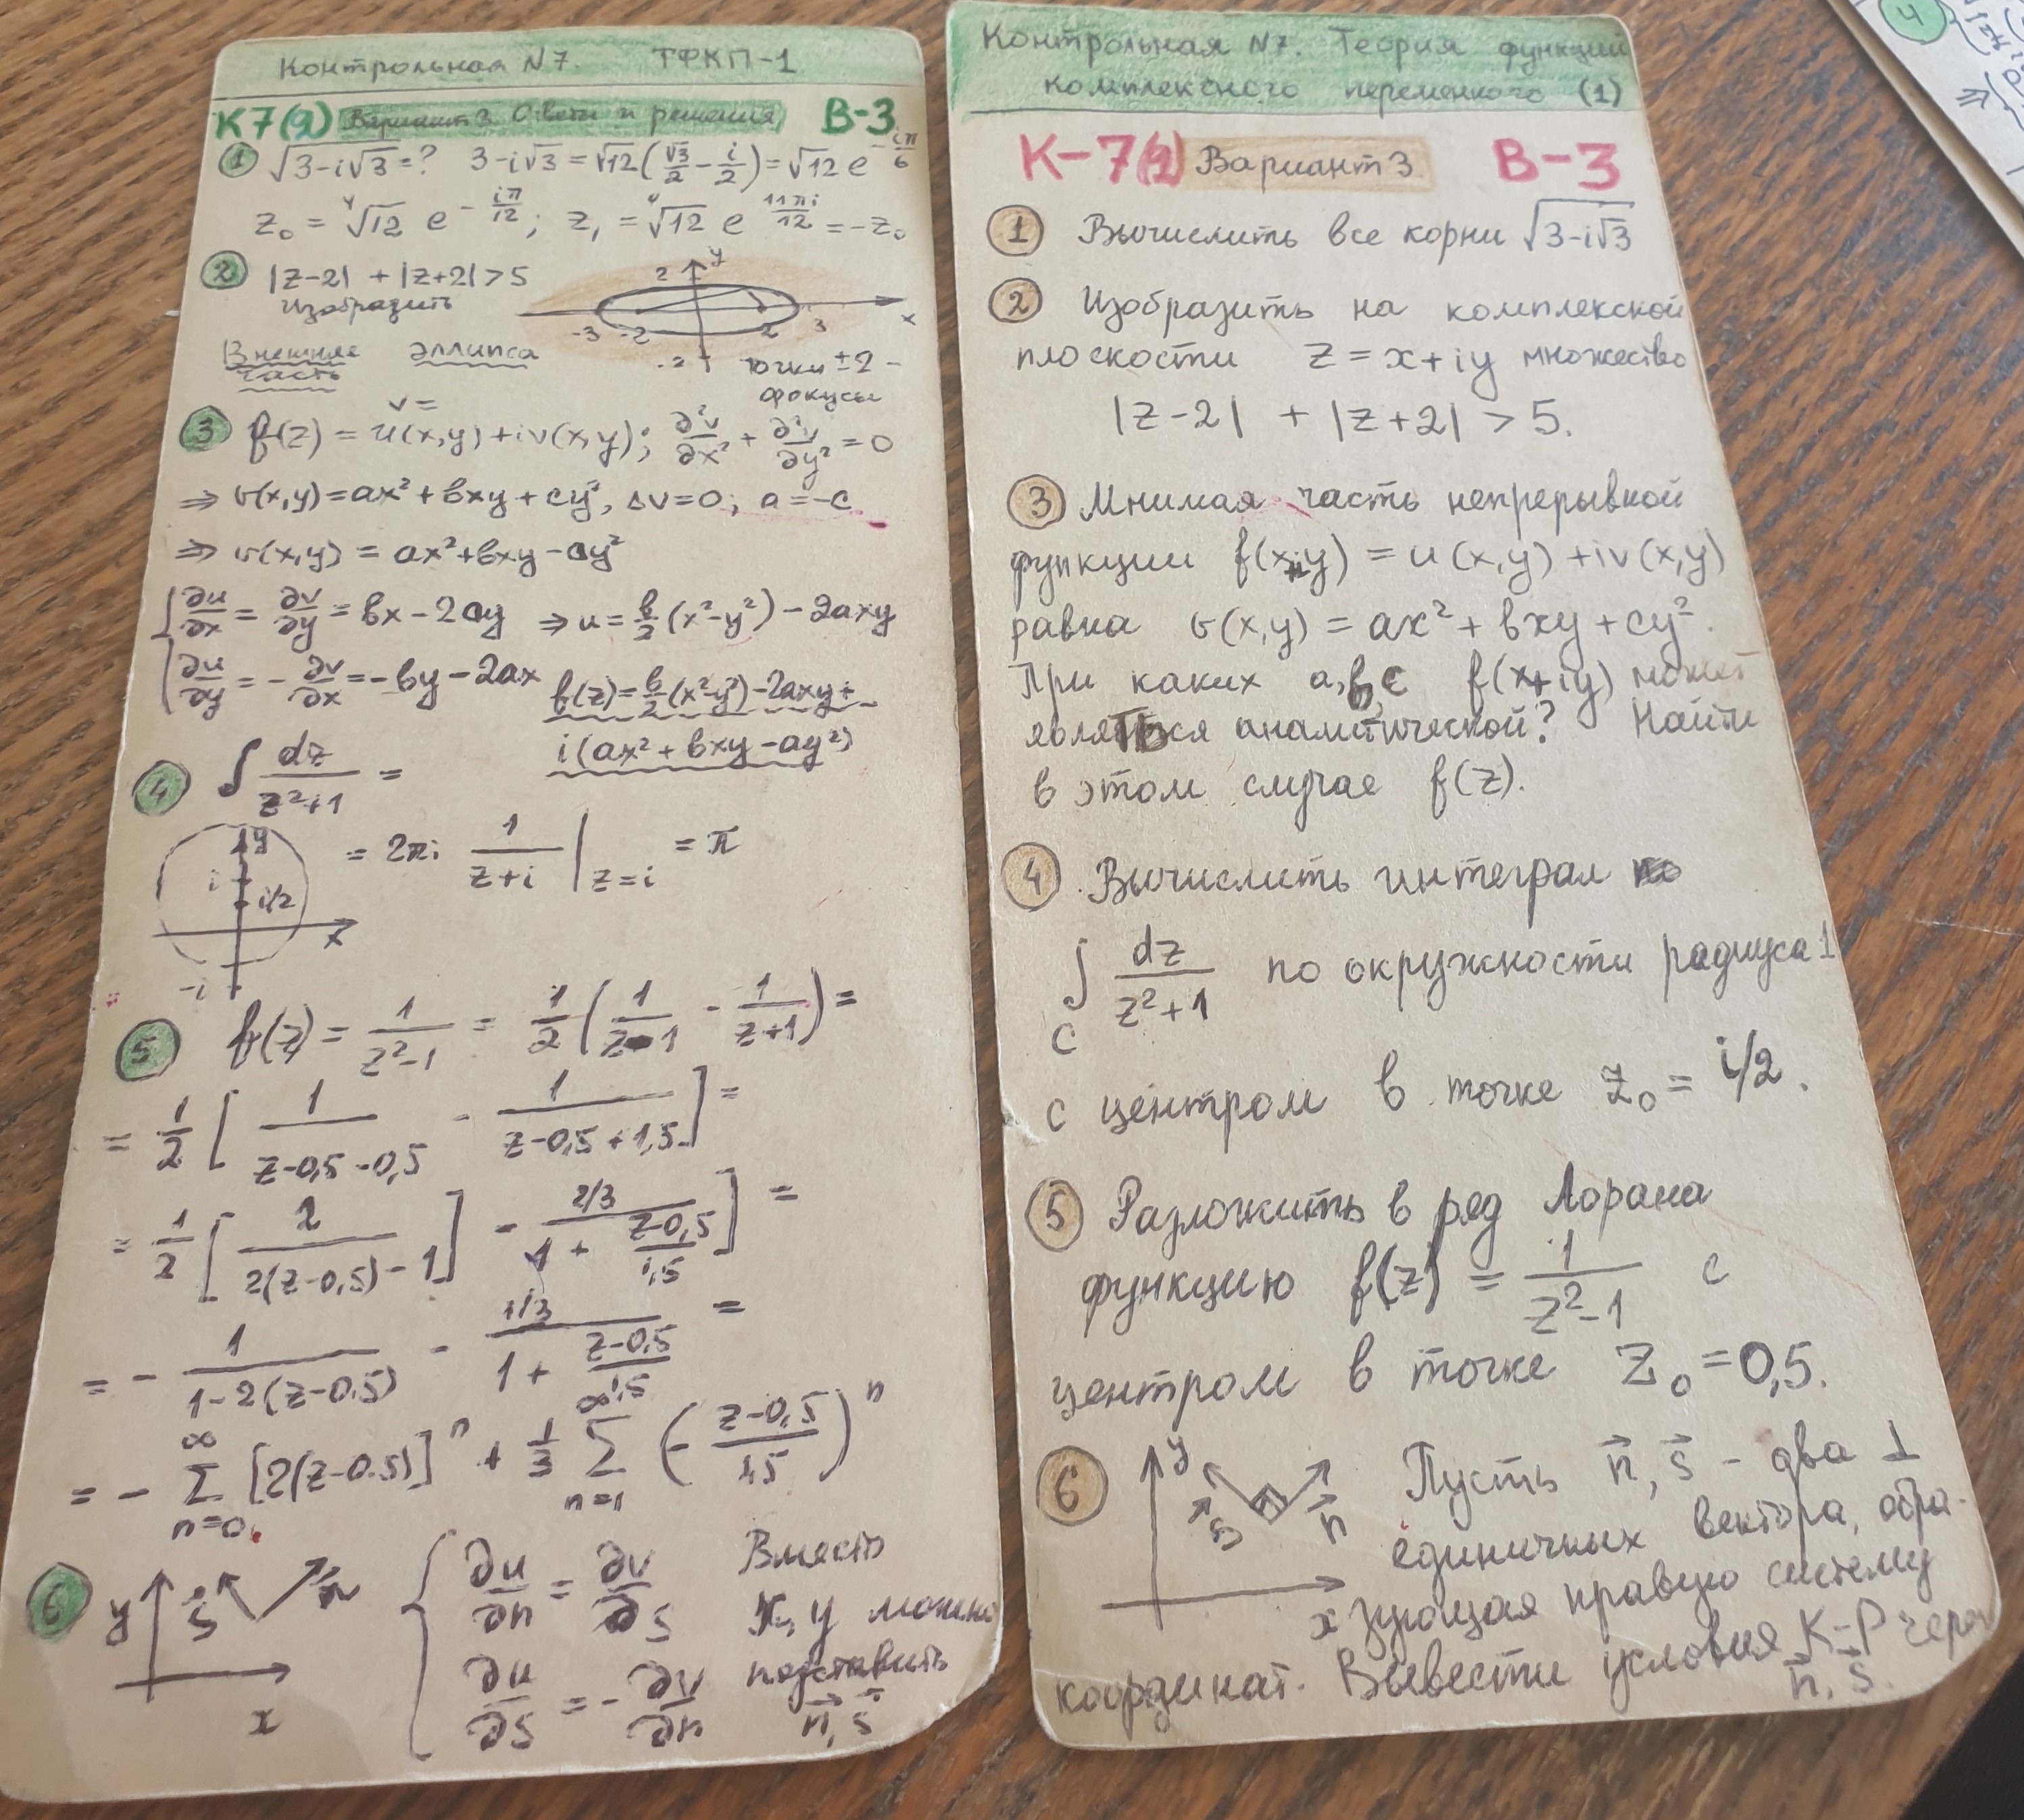 Контрольная N7. ТФКП-1
К7(2) Вариант 3 Ответы и решения В-3
1 √(3-i√3)=? 3-i√3 = √12(√3/2 - i/2) = √12 e^(-iπ/6)
z₀ = ⁴√12 e^(-iπ/12); z₁ = ⁴√12 e^(11πi/12) = -z₀
2 |z-2| + |z+2| > 5
изобразить
Внешняя эллипса
часть
y
2
-3 -2 2 3 x
-2
точки ±2 -
фокусы
v=
3 f(z) = u(x,y)+iv(x,y); ∂²v/∂x² + ∂²v/∂y² = 0
⇒ v(x,y)=ax²+bxy+cy², Δv=0; a=-c
⇒ v(x,y) = ax²+bxy-ay²
∂u/∂x = ∂v/∂y = bx-2ay ⇒ u = b/2 (x²-y²) - 2axy
∂u/∂y = -∂v/∂x = -by-2ax f(z)=b/2(x²-y²)-2axy+
i(ax²+bxy-ay²)
4 ∫ dz/(z²+1) =
= 2πi 1/(z+i) |z=i = π
y
i
i/2
x
-i
5 f(z) = 1/(z²-1) = 1/2 (1/(z-1) - 1/(z+1)) =
= 1/2 [1/(z-0,5-0,5) - 1/(z-0,5+1,5)] =
= 1/2 [2/(2(z-0,5)-1] - (2/3)/(1 + (z-0,5)/1,5)] =
= - 1/(1-2(z-0,5)) - (1/3)/(1 + (z-0,5)/1,5) =
= - ∞Σn=0 [2(z-0.5)]ⁿ + 1/3 ∞Σn=1 (- (z-0,5)/1,5)ⁿ
6 y s n x
∂u/∂n = ∂v/∂s
∂u/∂s = -∂v/∂n
Вместо
x, y можно
подставить
n, s
Контрольная N7. Теория функций
комплексного переменного (1)
К-7(2) Вариант 3 В-3
1 Вычислить все корни √(3-i√3)
2 Изобразить на комплексной
плоскости z = x+iy множество
|z-2| + |z+2| > 5.
3 Мнимая часть непрерывной
функции f(x+iy) = u(x,y) + iv(x,y)
равна v(x,y) = ax² + bxy + cy².
При каких a,b,c f(x+iy) может
являться аналитической? Найти
в этом случае f(z).
4 Вычислить интеграл
∫C dz/(z²+1) по окружности радиуса 1
с центром в точке z₀ = i/2.
5 Разложить в ряд Лорана
функцию f(z) = 1/(z²-1) с
центром в точке z₀ = 0,5.
6 y s n x
Пусть n, s - два ⊥
единичных вектора, обра-
зующая правую систему
координат. Вывести условия К-Р через
n, s.
4